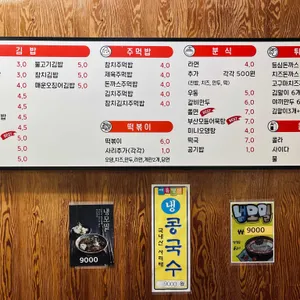 김 밥
3,0
4,5
4,0
4,5
4,5
4,5
4,5
5,0
4,5
불고기김밥 5,0
참치김밥 5,0
매운오징어김밥 5,0
주먹밥
참치주먹밥 4,0
제육주먹밥 4,0
돈까스주먹밥 4,0
김치주먹밥 4,0
참치김치주먹밥 4,0
떡볶이
떡볶이 6,0
사리추가(각각) 1,0
분 식
라면 4,0
추가 각각 500원
(치즈, 만두, 떡)
우동 5,0
갈비만두 6,0
쫄면 7,0
부산모듬어묵탕 7,0
미니오뎅탕 4,0
떡국 7,0
공기밥 1,0
튀
등심돈까스
치즈돈까스
고구마치즈
김말이 6개
야끼만두
김말이3+
콜라
사이다
물
냉모밀
9000
냉
콩국수
국내산 서리태
9000
냉모밀
₩ 9000